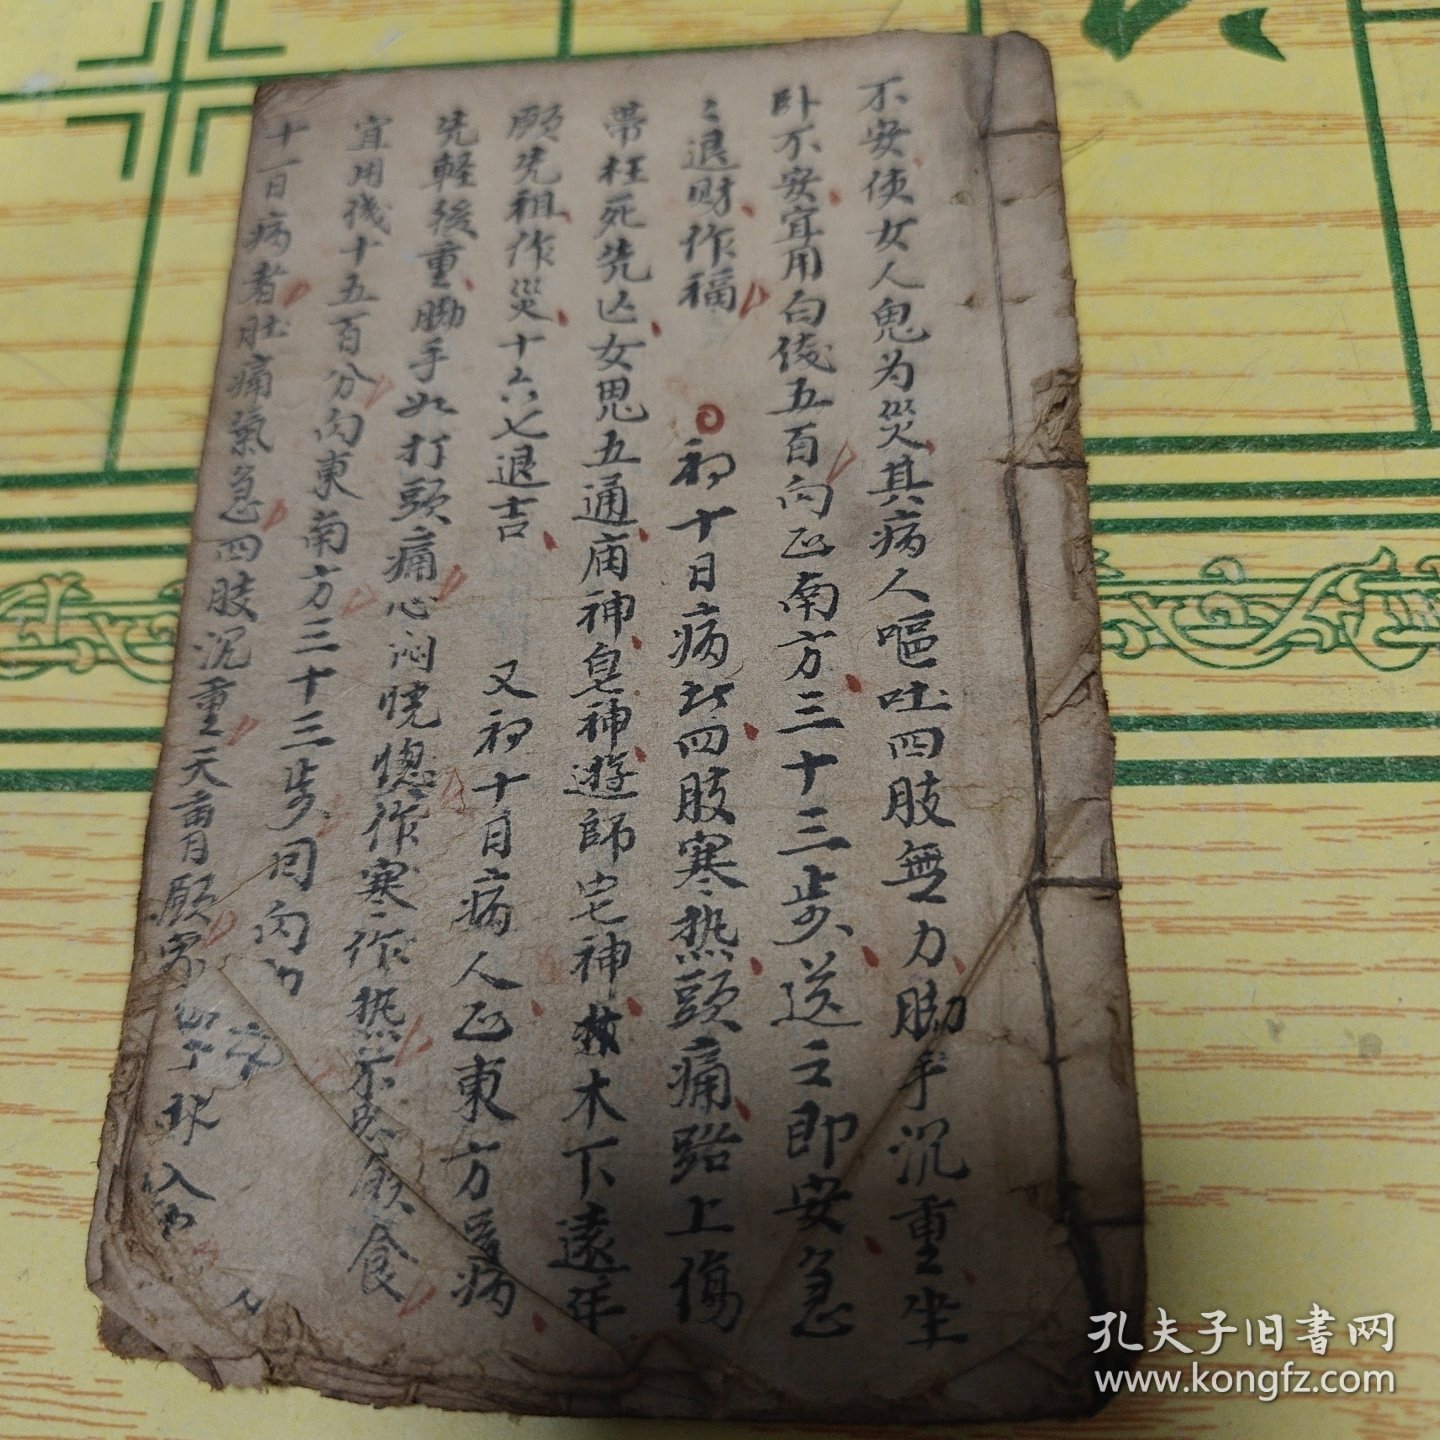 不安使女人鬼为災其病人嘔吐四肢無力脚手沉重坐
卧不安宜用白伐五百向正南方三十三步送之即安急
〻退财作福 初十日病北四肢寒热頭痛路上傷
带枉死先亡女鬼五通庙神皂神遊師宅神 木下遠年
願先祖作災十六七退吉 又初十日病人正東方 病
先輕後重脚手如打頭痛心闷晄惚作寒作热不思飲食
宜用伐十五百分向東南方三十三步同内
十一日病者肚痛氣急四肢沉重天
願家